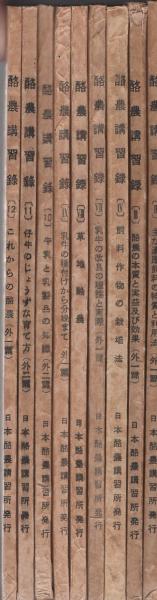 酪農講習録 〔12〕 これからの酪農 (外一篇) 日本酪農講習所発行
酪農講習録 〔11〕 仔牛のじょうずな育て方 (外二篇) 日本酪農講習所発行
酪農講習録 〔10〕 牛乳と乳製品の知識 (外二篇) 日本酪農講習所発行
酪農講習録 乳牛の種付けから分娩まで (外一篇) 日本酪農講習所発行
酪農講習録 草地酪農 日本酪農講習所発行
酪農講習録 乳牛の改良の理論と実際 (外一篇) 日本酪農講習所発行
酪農講習録 飼料作物の栽培法 日本酪農講習所発行
酪農講習録 酪農の本質と実益及び効果 (外一篇) 日本酪農講習所発行